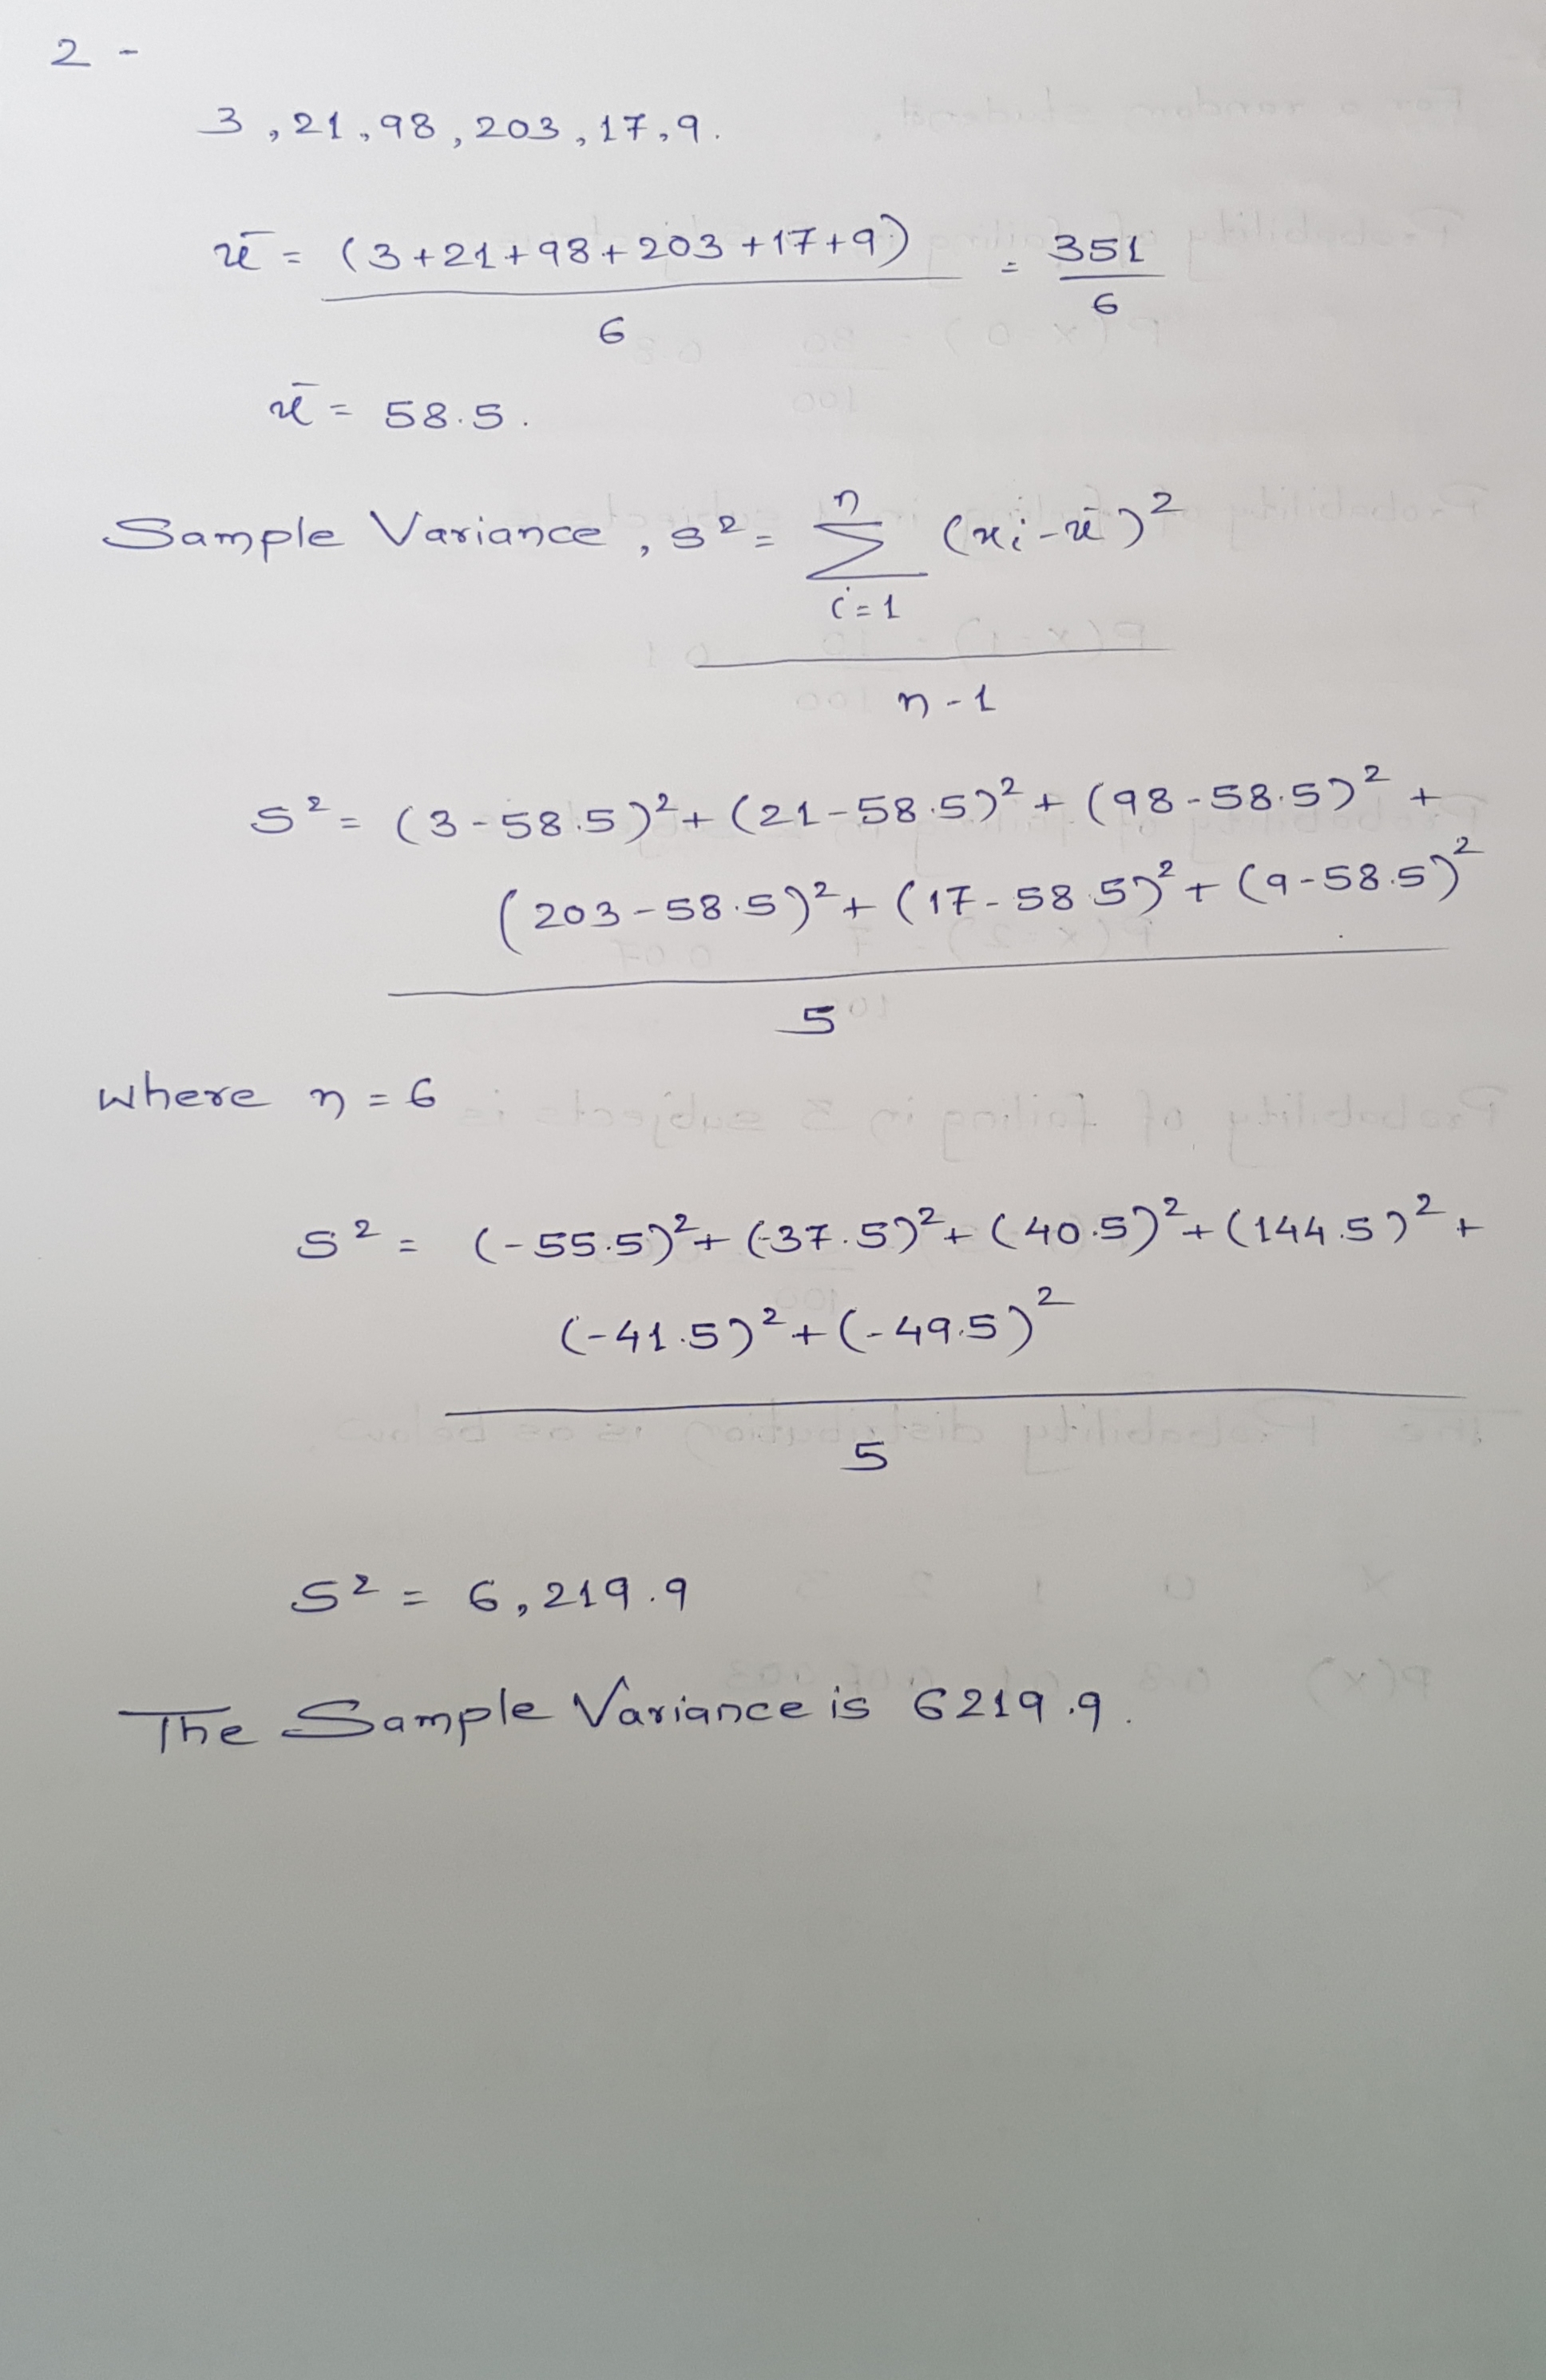 2 -
3, 21, 98, 203, 17, 9.
x̄ = (3+21+98+203+17+9) = 351
6 6
x̄ = 58.5.
Sample Variance, s² = n
Σ (xi - x̄)²
i=1
n-1
S² = (3-58.5)² + (21-58.5)² + (98-58.5)² +
(203-58.5)² + (17-58.5)² + (9-58.5)²
5
where n = 6
S² = (-55.5)² + (-37.5)² + (40.5)² + (144.5)² +
(-41.5)² + (-49.5)²
5
S² = 6,219.9
The Sample Variance is 6219.9.